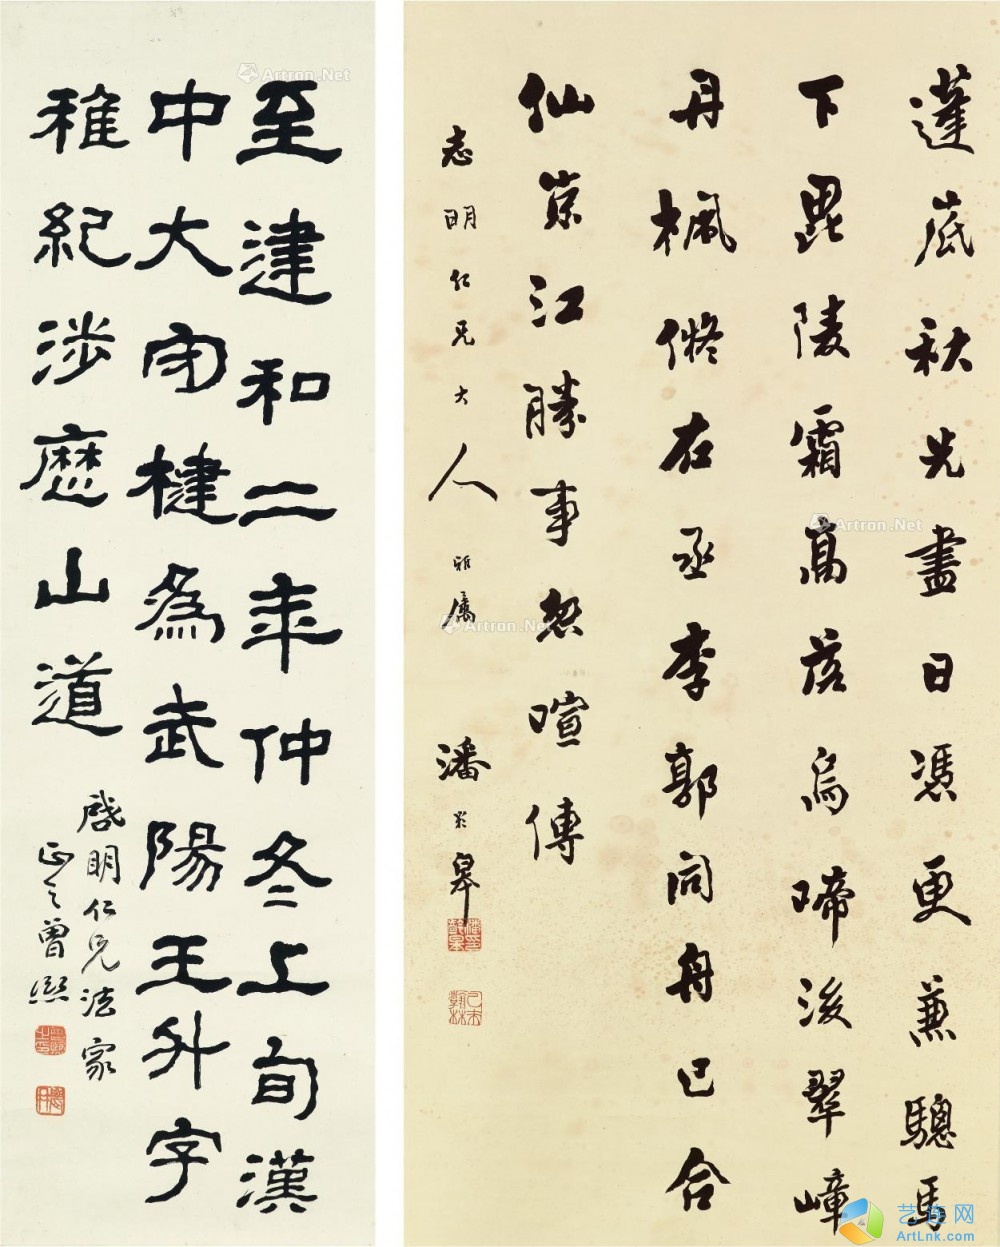 蓬底秋光盡日憑更兼驄馬
下毘陵霜高落烏啼後翠嶂
丹楓儗右丞李郭同舟已合
仙江勝事恐喧傳
志明仁兄大人雅屬 潘齡皋
至建和二年仲冬上旬漢
中大守楗為武陽王升字
稚紀涉歷山道
啟明仁兄法家
正之曾熙
Artron.Net
Artron.Net
Artron.Net
艺连网
ArtLnk.com